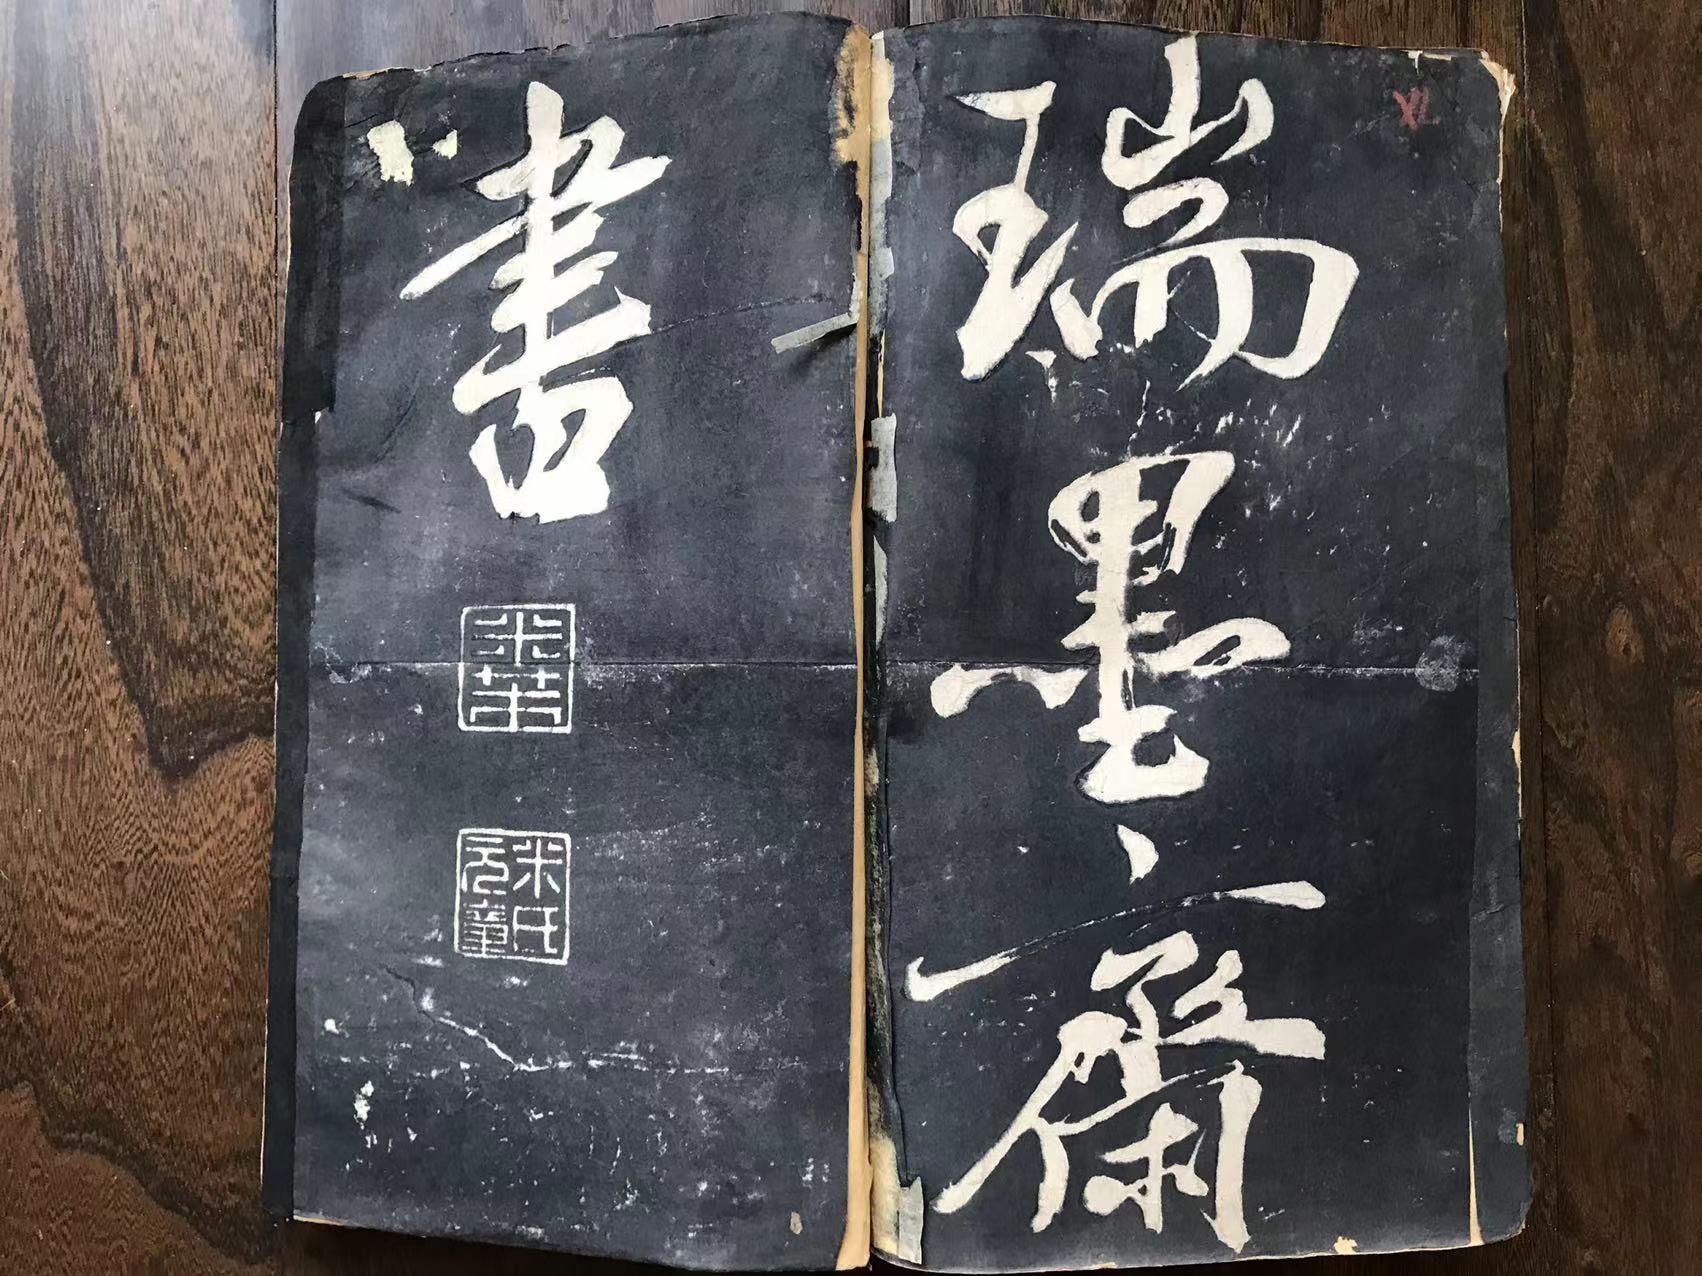 瑞墨齋
書
米芾
米氏元章